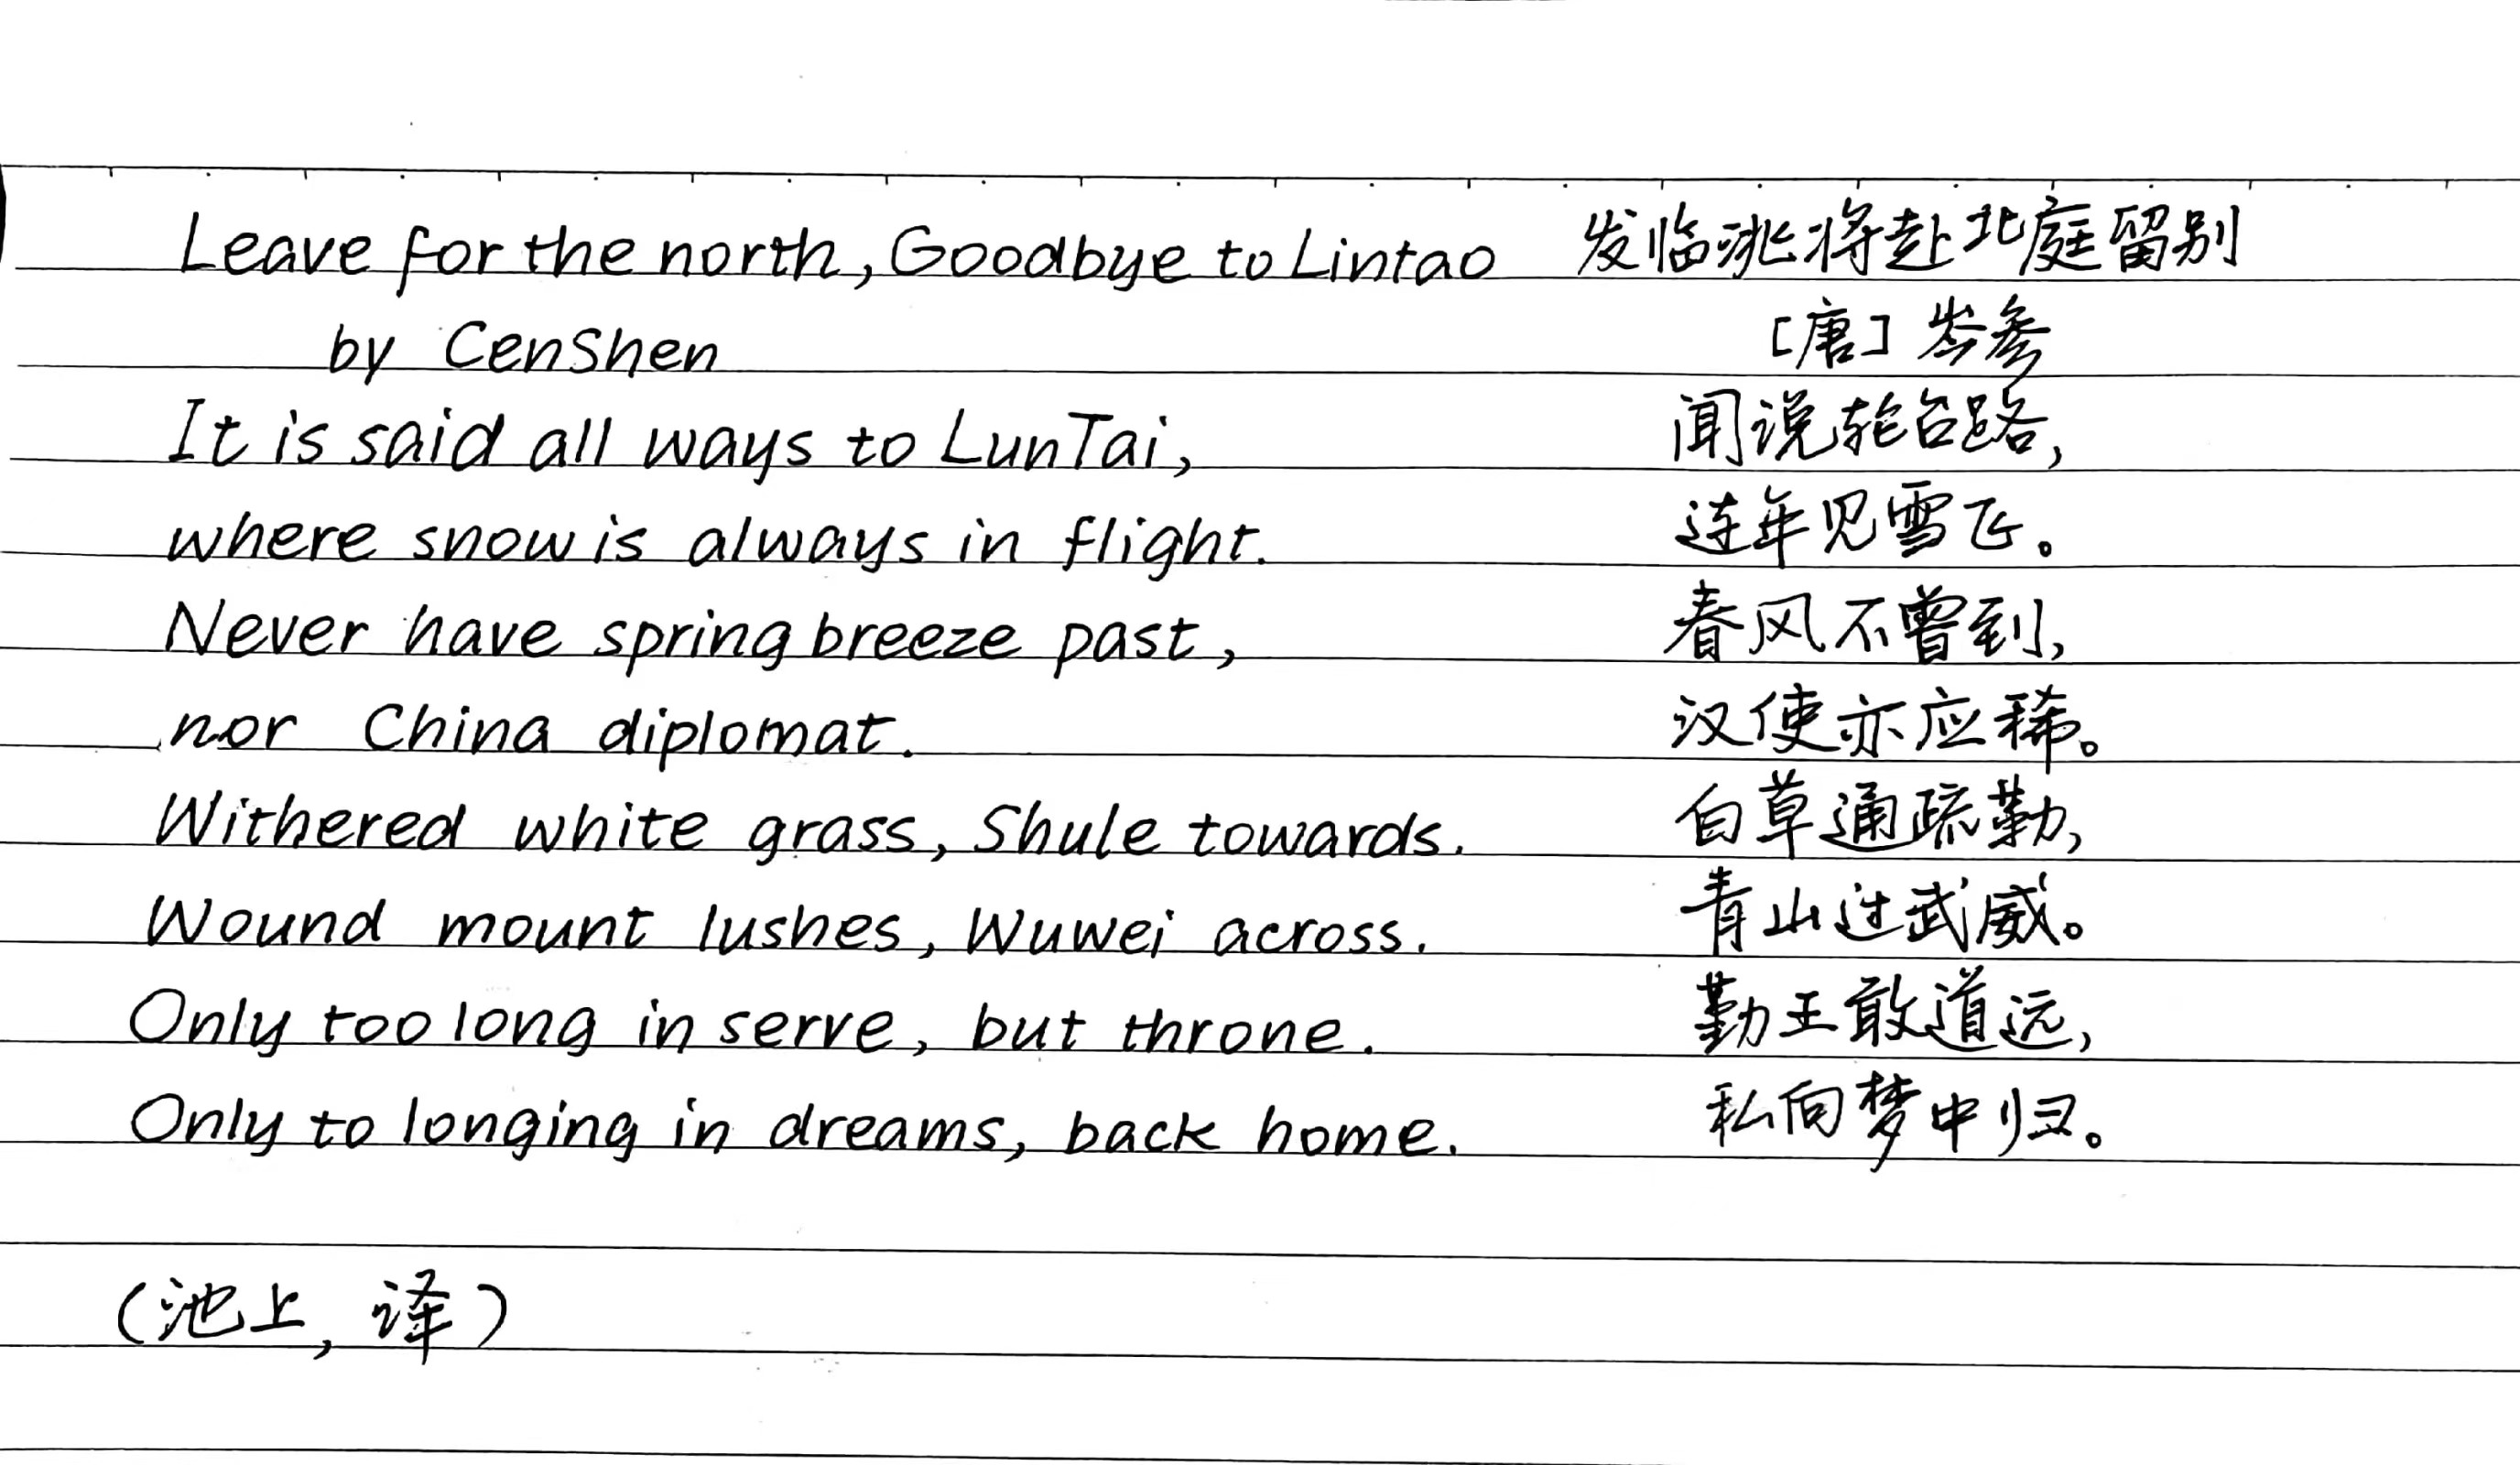 Leave for the north, Goodbye to Lintao 发临洮将赴北庭留别
by CenShen [唐] 岑参
It is said all ways to LunTai, 闻说轮台路,
where snow is always in flight. 连年见雪飞。
Never have spring breeze past, 春风不曾到,
nor China diplomat. 汉使亦应稀。
Withered white grass, Shule towards. 白草通疏勒,
Wound mount lushes, Wuwei across. 青山过武威。
Only too long in serve, but throne. 勤王敢道远,
Only to longing in dreams, back home. 私向梦中归。
(池上, 译)